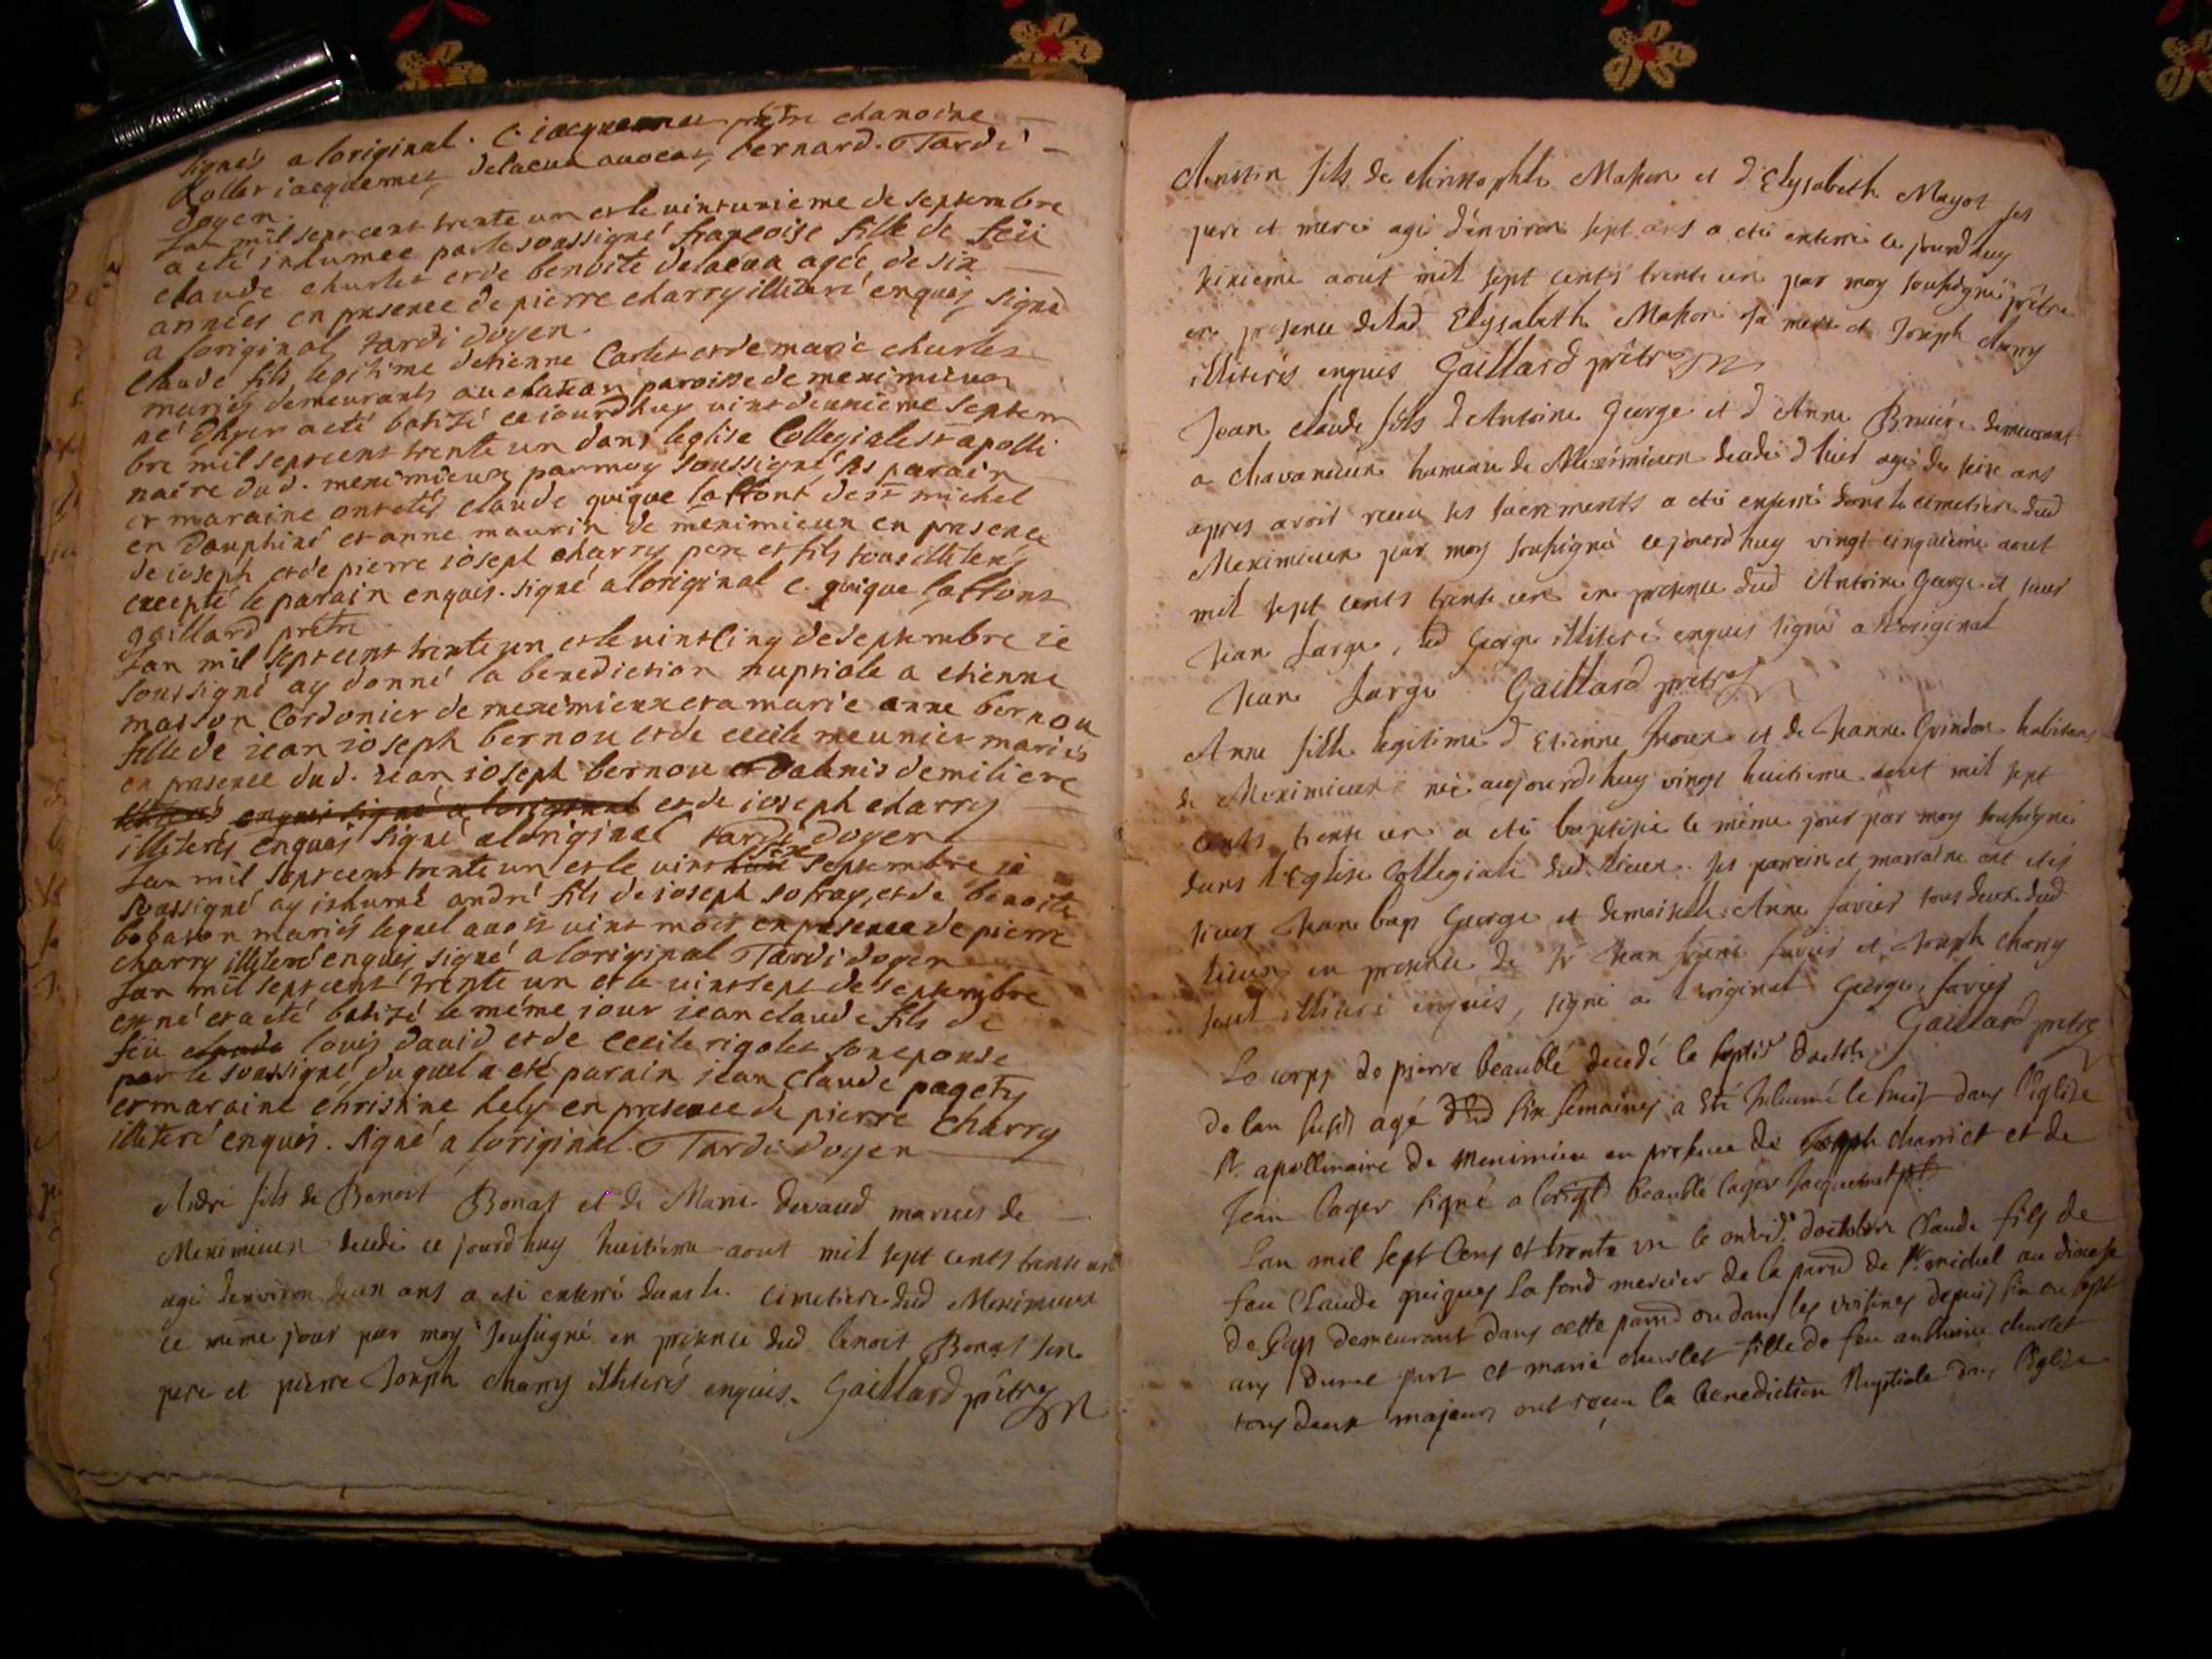 signés a loriginal. C. iacquemet prêtre chanoine
Rollet iacquemet delacua avocat, bernard. Tardi
doyen.
Lan mil sept cent trente un et le vint unieme de septembre
a eté inhumée par le soussigné françoise fille de feü
claude churlet et de benoite delacua agée de six
années en presence de pierre charry illiteré enquis signé
a loriginal tardi doyen.
Claude fils legitime detienne Carlet et de marie churlet
mariés demeurants au chatean paroisse de meximieux
né dhyer a eté batizé ce iourdhuy vint deuxieme septem
bre mil sept cent trente un dans leglise Collegiale st apolli
naire dud. meximieux par moy soussigné ses parain
et maraine ont etés claude guigue laffont de st michel
en dauphiné et anne maurin de meximieux en presence
de ioseph et de pierre ioseph charry pere et fils tous illiterés
excepté le parain enquis. signé a loriginal c. guigue laffont
gaillard prêtre
Lan mil sept cent trente un et le vint cinq de septembre ie
soussigné ay donné la benediction nuptiale a etienne
masson Cordonier de meximieux et a marie anne bernou
fille de iean ioseph bernou et de cecile meunier mariés
en presence dud. iean ioseph bernou et dalexis demiliere
enquis signé a loriginal et de ioseph charry
illiterés enquis signé a loriginal tardi doyen
Lan mil sept cent trente un et le vint six septembre ie
soussigné ay inhumé andré fils de ioseph sofray, et de benoite
mariés lequel a vint mois en presence de pierre
charry illiteré enquis signé a loriginal Tardi doyen
Lan mil sept cent trente un et le vint sept de septembre
est né et a eté batizé le méme iour iean claude fils de
feü claude louis david et de cecile rigolet son eponse
par le soussigné duquel a eté parain iean claude pagety
et maraine christine hely en presence de pierre charry
illiteré enquis. signé a loriginal. Tardi doyen
fils de Benoit Bonat et de Marie devaud mariés de
Meximieux decedé ce jourd'huy huitieme aout mil sept cents trente un
agé d'environ deux ans a eté enterré dans le cimetiere dud Meximieux
ce même jour par moy soussigné en presence dud benoit Bonat son
pere et pierre Joseph charry illiterés enquis. Gaillard prêtre
fils de christophle Masson et d'Elysabeth Mayot ses
pere et mere agé d'environ sept ans a eté enterré ce jourd'huy
aout mil sept cents trente un par moy soussigné prêtre
en presence de lad Elysabeth sa mere et Joseph charry
illiterés enquis Gaillard prêtre
Jean claude fils d'Antoine George et d'Anne Bruiere demeurant
a chavaneux hameau de Meximieux decedé d'hier agé de seize ans
apres avoir receu ses sacrements a eté enterré dans le cimetiere dud
Meximieux par moy soussigné ce jourd'huy vingt cinquieme aout
mil sept cents trente un en presence dud Antoine George et sieur
Jean Farge, led George illiteré enquis signé a l'original
Jean Farge Gaillard prêtre
Anne fille legitime d'Etienne et de Jeanne Guindon habitans
de Meximieux née aujourd'huy vingt huitieme aout mil sept
cents trente un a eté baptisée le même jour par moy soussigné
dans l'Eglise Collegiale dud lieux. ses parrein et marraine ont etés
sieur Jean bap George et demoiselle Anne favier tous deux dud
lieux en presence de Sr Jean favier et Joseph charry
seul illiteré enquis, signé a l'original George, favier
Gaillard prêtre
Le corps de pierre beaublé decedé le sept doctobre
de lan susdit agé dud six semaines a été Inhumé le huit dans l'Eglise
St. apollinaire de Meximieu en presence de Joseph charriet et de
Jean lager signé a lorigl beaublé lager Jacquemet
Lan mil sept cens et trente un le doctobre Claude fils de
feu Claude guigues La fond mercier de la parod de St michel au diocese
de Gap demeurant dans cette parod ou dans les voisines depuis six ou sept
ans dune part et marie churlet fille de feu anthoine churlet
tous deux majeurs ont receu la benediction Nuptiale dans l'Eglise